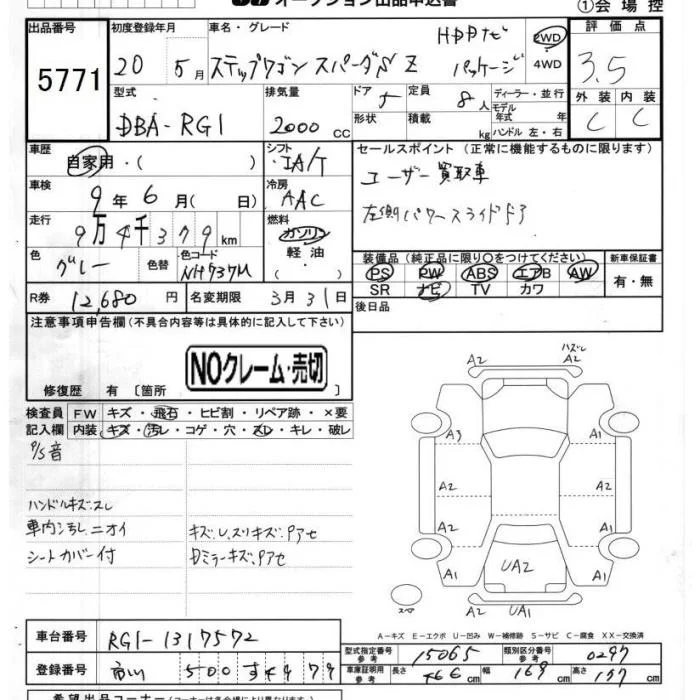 オークション出品申込書
①会場控
出品番号 5771
初度登録年月 20 5月
車名・グレード ステップワゴン スパーダS Z HDDナビ パッケージ
2WD
4WD
評価点 3.5
外装 内装
C C
型式 DBA-RG1
排気量 2000 cc
ドア 5 定員 8人
形状 積載 kg
ディーラー・並行
モデル年式 年式
ハンドル 左・右
車歴 自家用・( )
シフト IA/T
車検 9年6月( 日)
冷房 AAC
走行 9万4千379km
燃料 ガソリン
軽油
・( )
色 グレー 色替 色コード NH737M
R券 12,680円 名変期限 3月31日
セールスポイント (正常に機能するものに限ります)
ユーザー買取車
左側パワースライドドア
装備品(純正品に限り○をつけてください) 新車保証書
PS PW ABS エアB AW
SR ナビ TV カワ
有・無
後日品
注意事項申告欄(不具合内容等は具体的に記入して下さい)
NOクレーム・売切
修復歴 有〔箇所 〕
検査員記入欄
FW キズ・飛石・ヒビ割・リペア跡・×要
内装 キズ・汚レ・コゲ・穴・スレ・キレ・破レ
P/S音
ハンドルキズ.スレ
車内汚レ ニオイ
シートカバー付
キズ.U.スリキズ.Pアセ
Dミラーキズ.Pアセ
A2 ハズレ A2
A3 A1
A2 A2
A2 A2
A1 UA2 A1
スペア A2 UA1
A-キズ E-エクボ U-凹み W-補修跡 S-サビ C-腐食 XX-交換済
車台番号 RG1-1317572
登録番号 市川 500 す 4979
型式指定番号 参考 15065 類別区分番号 参考 0297
車庫証明用 参考 長さ 466cm 幅 169cm 高さ 177cm
希望出品コーナー